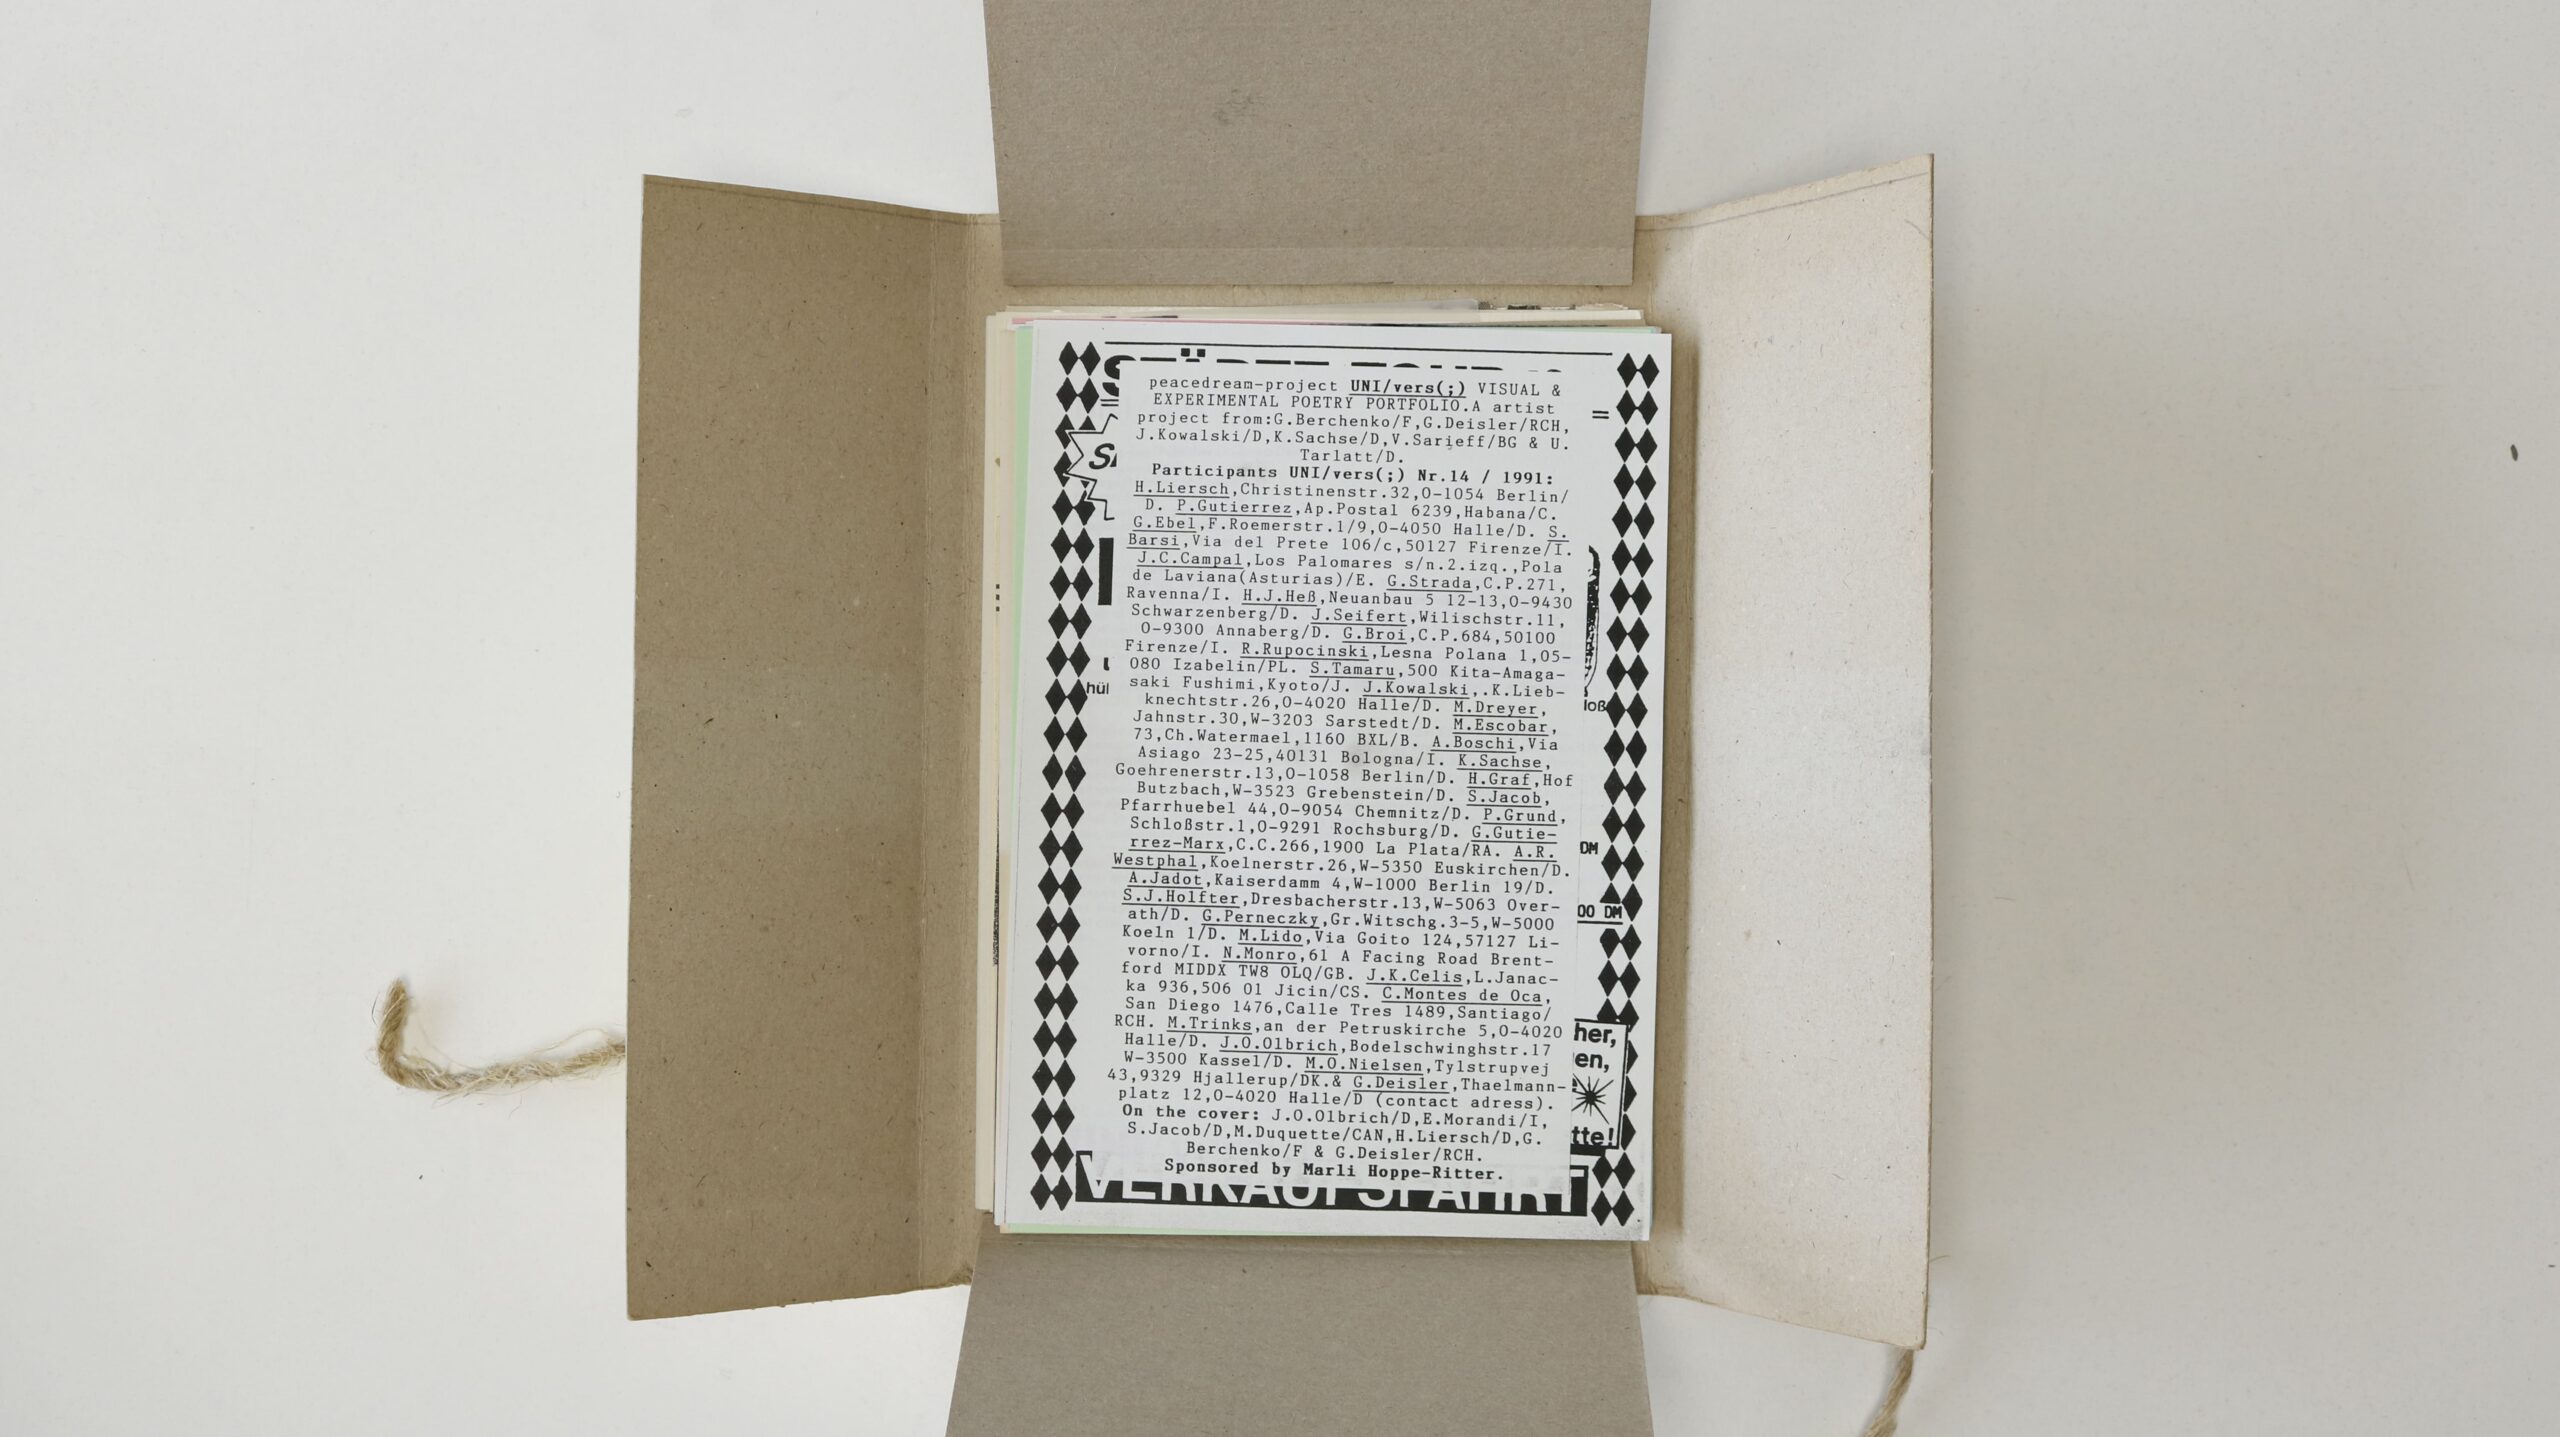 peacedream-project UNI/vers(;) VISUAL &
EXPERIMENTAL POETRY PORTFOLIO.A artist
project from:G.Berchenko/F,G.Deisler/RCH,
J.Kowalski/D,K.Sachse/D,V.Sarieff/BG & U.
Tarlatt/D.
Participants UNI/vers(;) Nr.14 / 1991:
H.Liersch,Christinenstr.32,O-1054 Berlin/
D. P.Gutierrez,Ap.Postal 6239,Habana/C.
G.Ebel,F.Roemerstr.1/9,O-4050 Halle/D. S.
Barsi,Via del Prete 106/c,50127 Firenze/I.
J.C.Campal,Los Palomares s/n.2.izq.,Pola
de Laviana(Asturias)/E. G.Strada,C.P.271,
Ravenna/I. H.J.Heß,Neuanbau 5 12-13,O-9430
Schwarzenberg/D. J.Seifert,Wilischstr.11,
O-9300 Annaberg/D. G.Broi,C.P.684,50100
Firenze/I. R.Rupocinski,Lesna Polana 1,05-
080 Izabelin/PL. S.Tamaru,500 Kita-Amaga-
saki Fushimi,Kyoto/J. J.Kowalski,.K.Lieb-
knechtstr.26,O-4020 Halle/D. M.Dreyer,
Jahnstr.30,W-3203 Sarstedt/D. M.Escobar,
73,Ch.Watermael,1160 BXL/B. A.Boschi,Via
Asiago 23-25,40131 Bologna/I. K.Sachse,
Goehrenerstr.13,O-1058 Berlin/D. H.Graf,Hof
Butzbach,W-3523 Grebenstein/D. S.Jacob,
Pfarrhuebel 44,O-9054 Chemnitz/D. P.Grund,
Schloßstr.1,O-9291 Rochsburg/D. G.Gutie-
rrez-Marx,C.C.266,1900 La Plata/RA. A.R.
Westphal,Koelnerstr.26,W-5350 Euskirchen/D.
A.Jadot,Kaiserdamm 4,W-1000 Berlin 19/D.
S.J.Holfter,Dresbacherstr.13,W-5063 Over-
ath/D. G.Perneczky,Gr.Witschg.3-5,W-5000
Koeln 1/D. M.Lido,Via Goito 124,57127 Li-
vorno/I. N.Monro,61 A Facing Road Brent-
ford MIDDX TW8 OLQ/GB. J.K.Celis,L.Janac-
ka 936,506 01 Jicin/CS. C.Montes de Oca,
San Diego 1476,Calle Tres 1489,Santiago/
RCH. M.Trinks,an der Petruskirche 5,O-4020
Halle/D. J.O.Olbrich,Bodelschwinghstr.17
W-3500 Kassel/D. M.O.Nielsen,Tylstrupvej
43,9329 Hjallerup/DK.& G.Deisler,Thaelmann-
platz 12,O-4020 Halle/D (contact adress).
On the cover: J.O.Olbrich/D,E.Morandi/I,
S.Jacob/D,M.Duquette/CAN,H.Liersch/D,G.
Berchenko/F & G.Deisler/RCH.
Sponsored by Marli Hoppe-Ritter.
hül
loß
DM
00 DM
her,
en,
tte!
VERKAUFSFAHRT